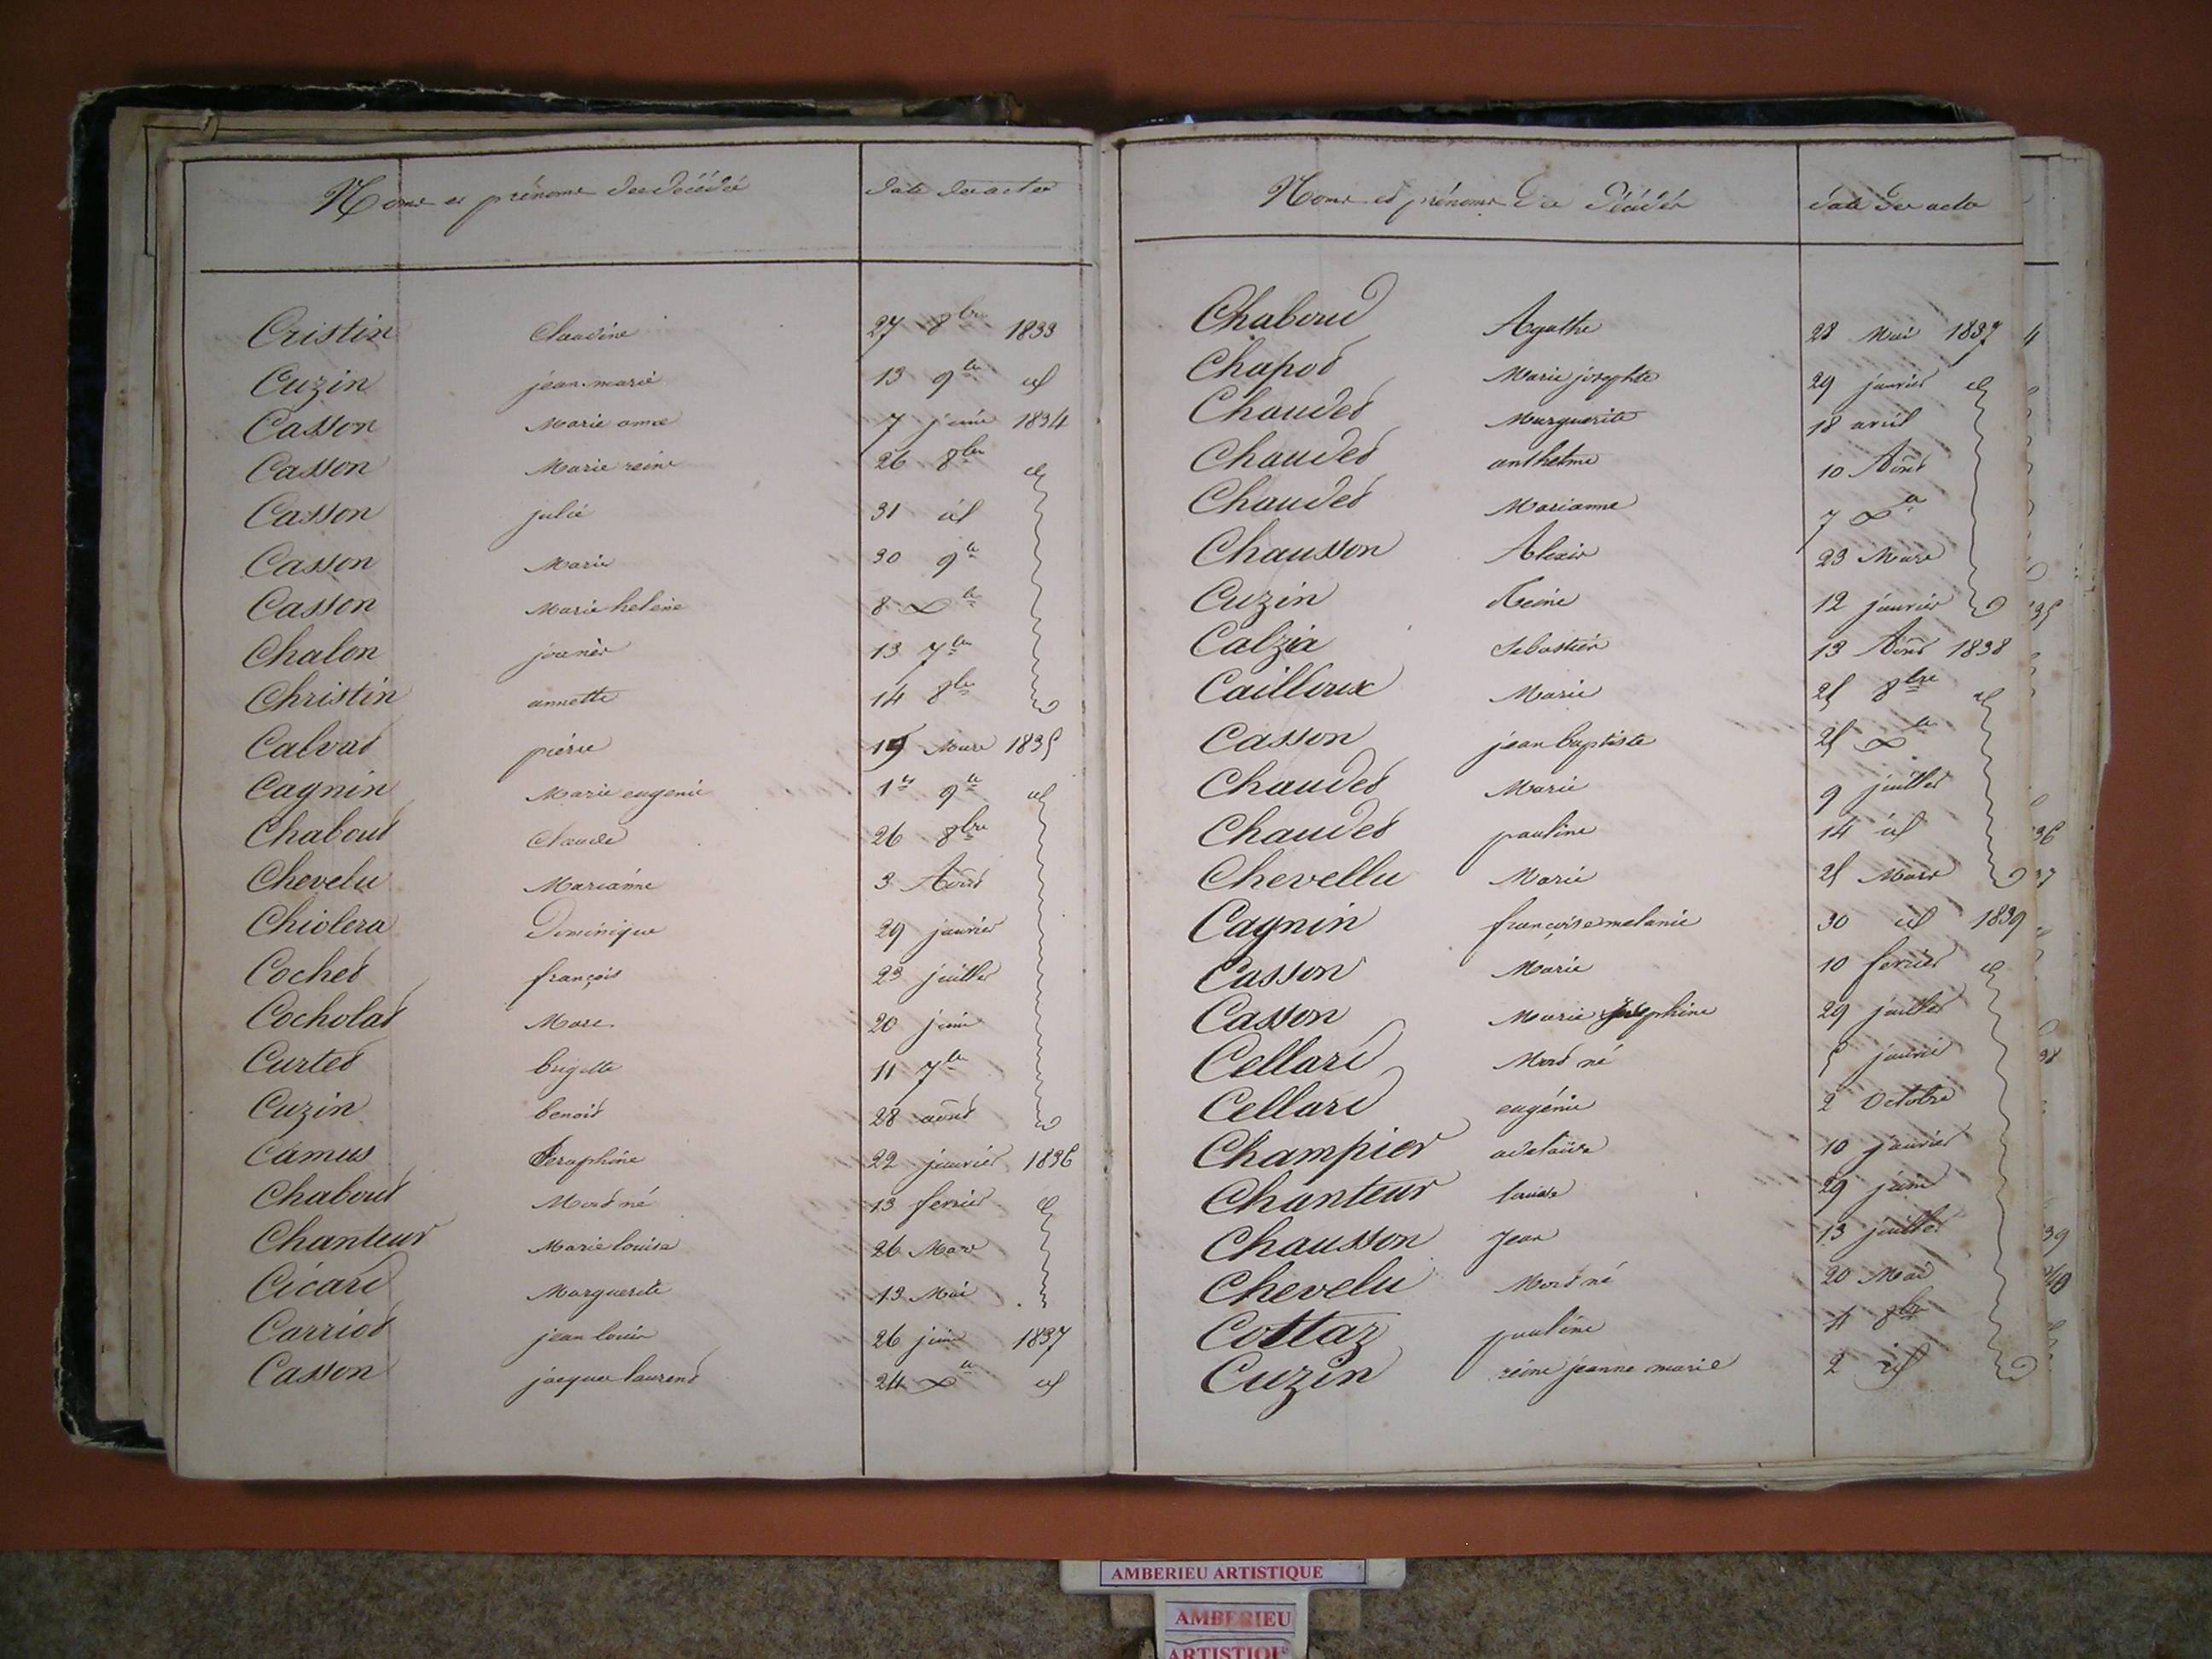 Noms et prénoms des décédés
date des actes
Cristin Claudine 27 8bre 1833
Cuzin jean marie 13 9bre id
Casson Marie anne 7 juin 1834
Casson Marie reine 26 8bre id
Casson julie 31 id
Casson Marie 30 9bre
Casson Marie helene 8 Xbre
Chalon 13 7bre
Christin annette 14 8bre
Calvat pierre 19 Mars 1835
Cagnin Marie eugenie 1er 9bre id
Chaboud Claude 26 8bre
Chevelu Marianne 3 Août
Chiolera Dominique 29 janvier
Cochet françois 23 juillet
Cocholat Marc 20 juin
Curtet brigitte 11 7bre
Cuzin benoit 28 août
Camus Seraphine 22 janvier 1836
Chaboud Mort né 13 fevrier id
Chanteur Marie louise 26 Mars
Cicard Marguerite 13 Mai
Carriot jean louis 26 juin 1837
Casson jacques laurent 24 Xbre id
Noms et prénoms des décédés
date des actes
Chaboud Agathe 28 Mai 1837
Chapot Marie josephte 29 janvier id
Chaudet Marguerite 18 avril
Chaudet anthelme 10 Août
Chaudet Marianne 7 Xbre
Chausson Alexis 23 Mars
Cuzin Reine 12 janvier
Calzia Sebastien 13 Août 1838
Cailloux Marie 25 8bre id
Casson jean baptiste 25 Xbre
Chaudet Marie 9 juillet
Chaudet pauline 14 id
Chevellu Marie 25 Mars
Cagnin françoise melanie 30 id 1839
Casson Marie 10 fevrier id
Casson Marie josephine 29 juillet
Cellard Mort né 5 janvier
Cellard eugénie 2 Octobre
Champier adelaïde 10 janvier
Chanteur 29 juin
Chausson Jean 13 juillet
Chevelu Mort né 20 Mai
Cottaz pauline 8bre
Cuzin reine jeanne marie 2 id
AMBERIEU ARTISTIQUE
AMBERIEU
ARTISTIQUE